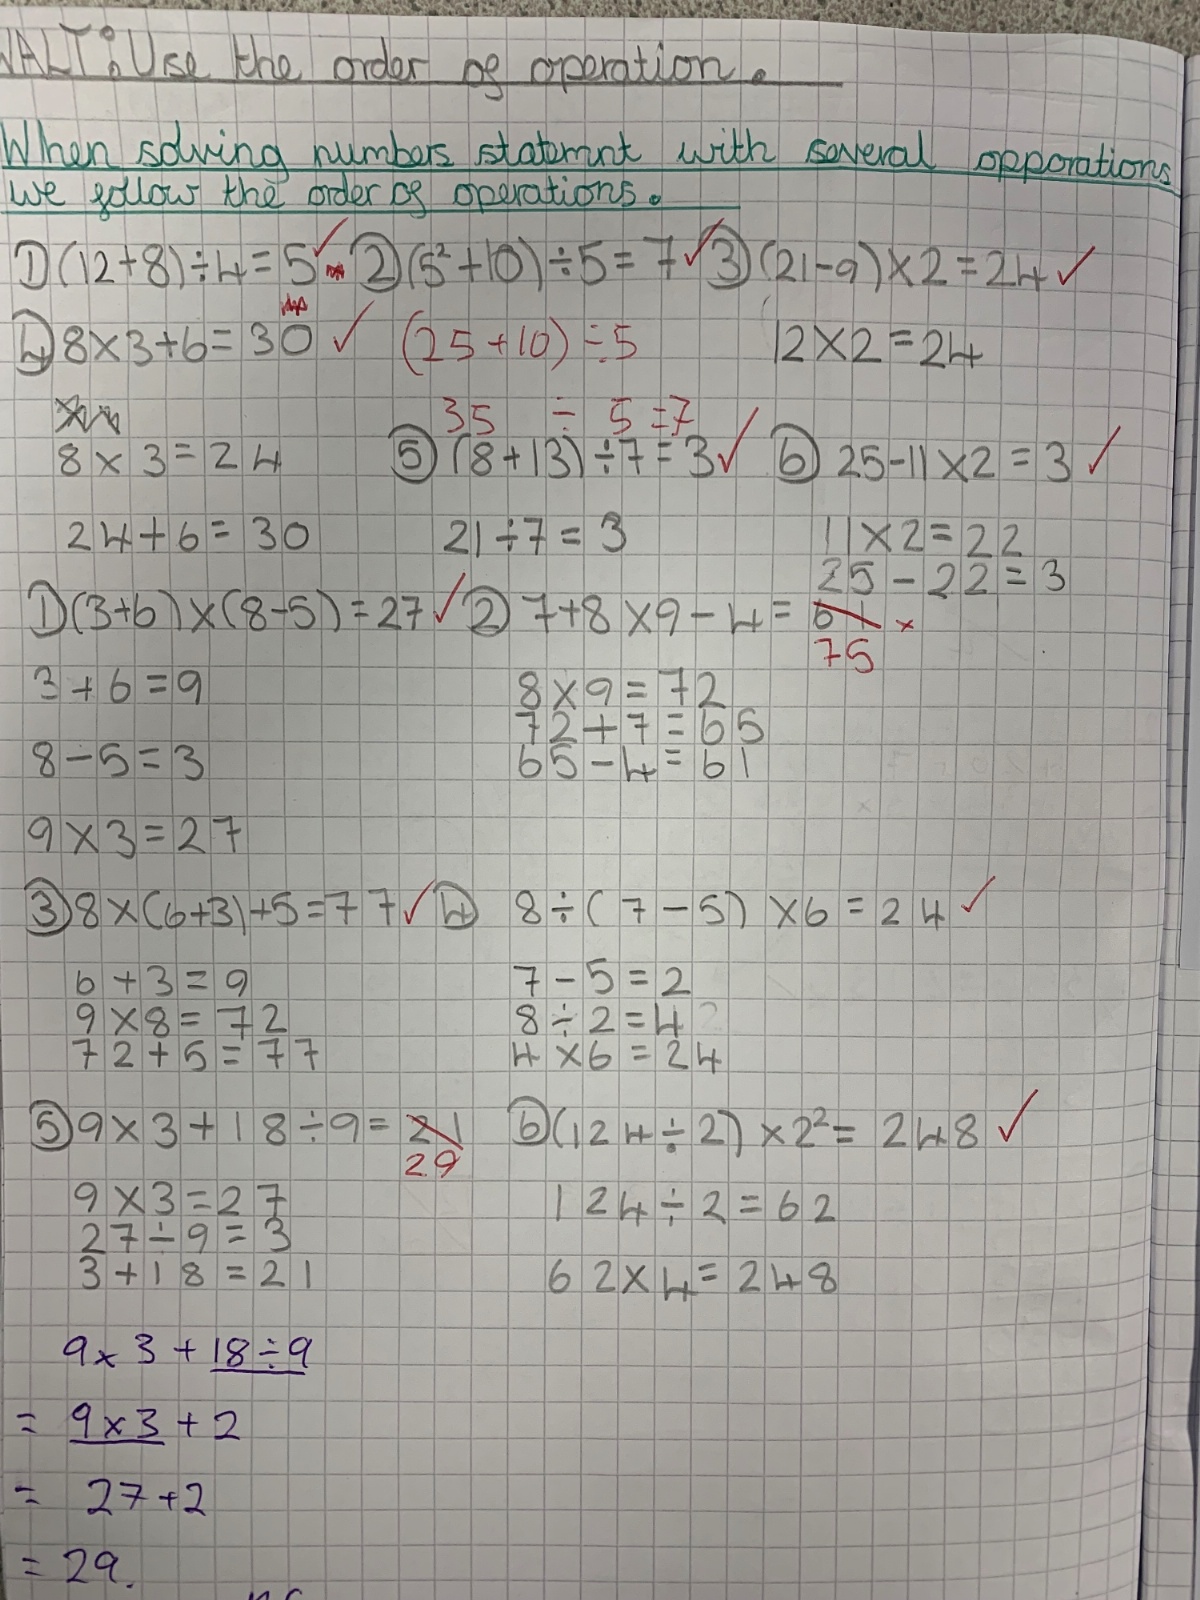 WALT: Use the order of operation.
When solving numbers statemnt with several opporations
we follow the order of operations.
① (12+8)÷4=5✓ ② (5²+10)÷5=7✓ ③ (21-9)×2=24✓
④ 8×3+6=30 ✓ (25+10)÷5 12×2=24
35 ÷ 5=7
8×3=24 ⑤ (8+13)÷7=3✓ ⑥ 25-11×2=3 ✓
24+6=30 21÷7=3 11×2=22
25-22=3
① (3+6)×(8-5)=27✓ ② 7+8×9-4=61 ×
75
3+6=9 8×9=72
72+7=65
8-5=3 65-4=61
9×3=27
③ 8×(6+3)+5=77✓ ④ 8÷(7-5)×6=24 ✓
6+3=9 7-5=2
9×8=72 8÷2=4
72+5=77 4×6=24
⑤ 9×3+18÷9=21 ⑥ (124÷2)×2²=248 ✓
29
9×3=27 124÷2=62
27÷9=3
3+18=21 62×4=248
9×3+18÷9
= 9×3+2
= 27+2
= 29.